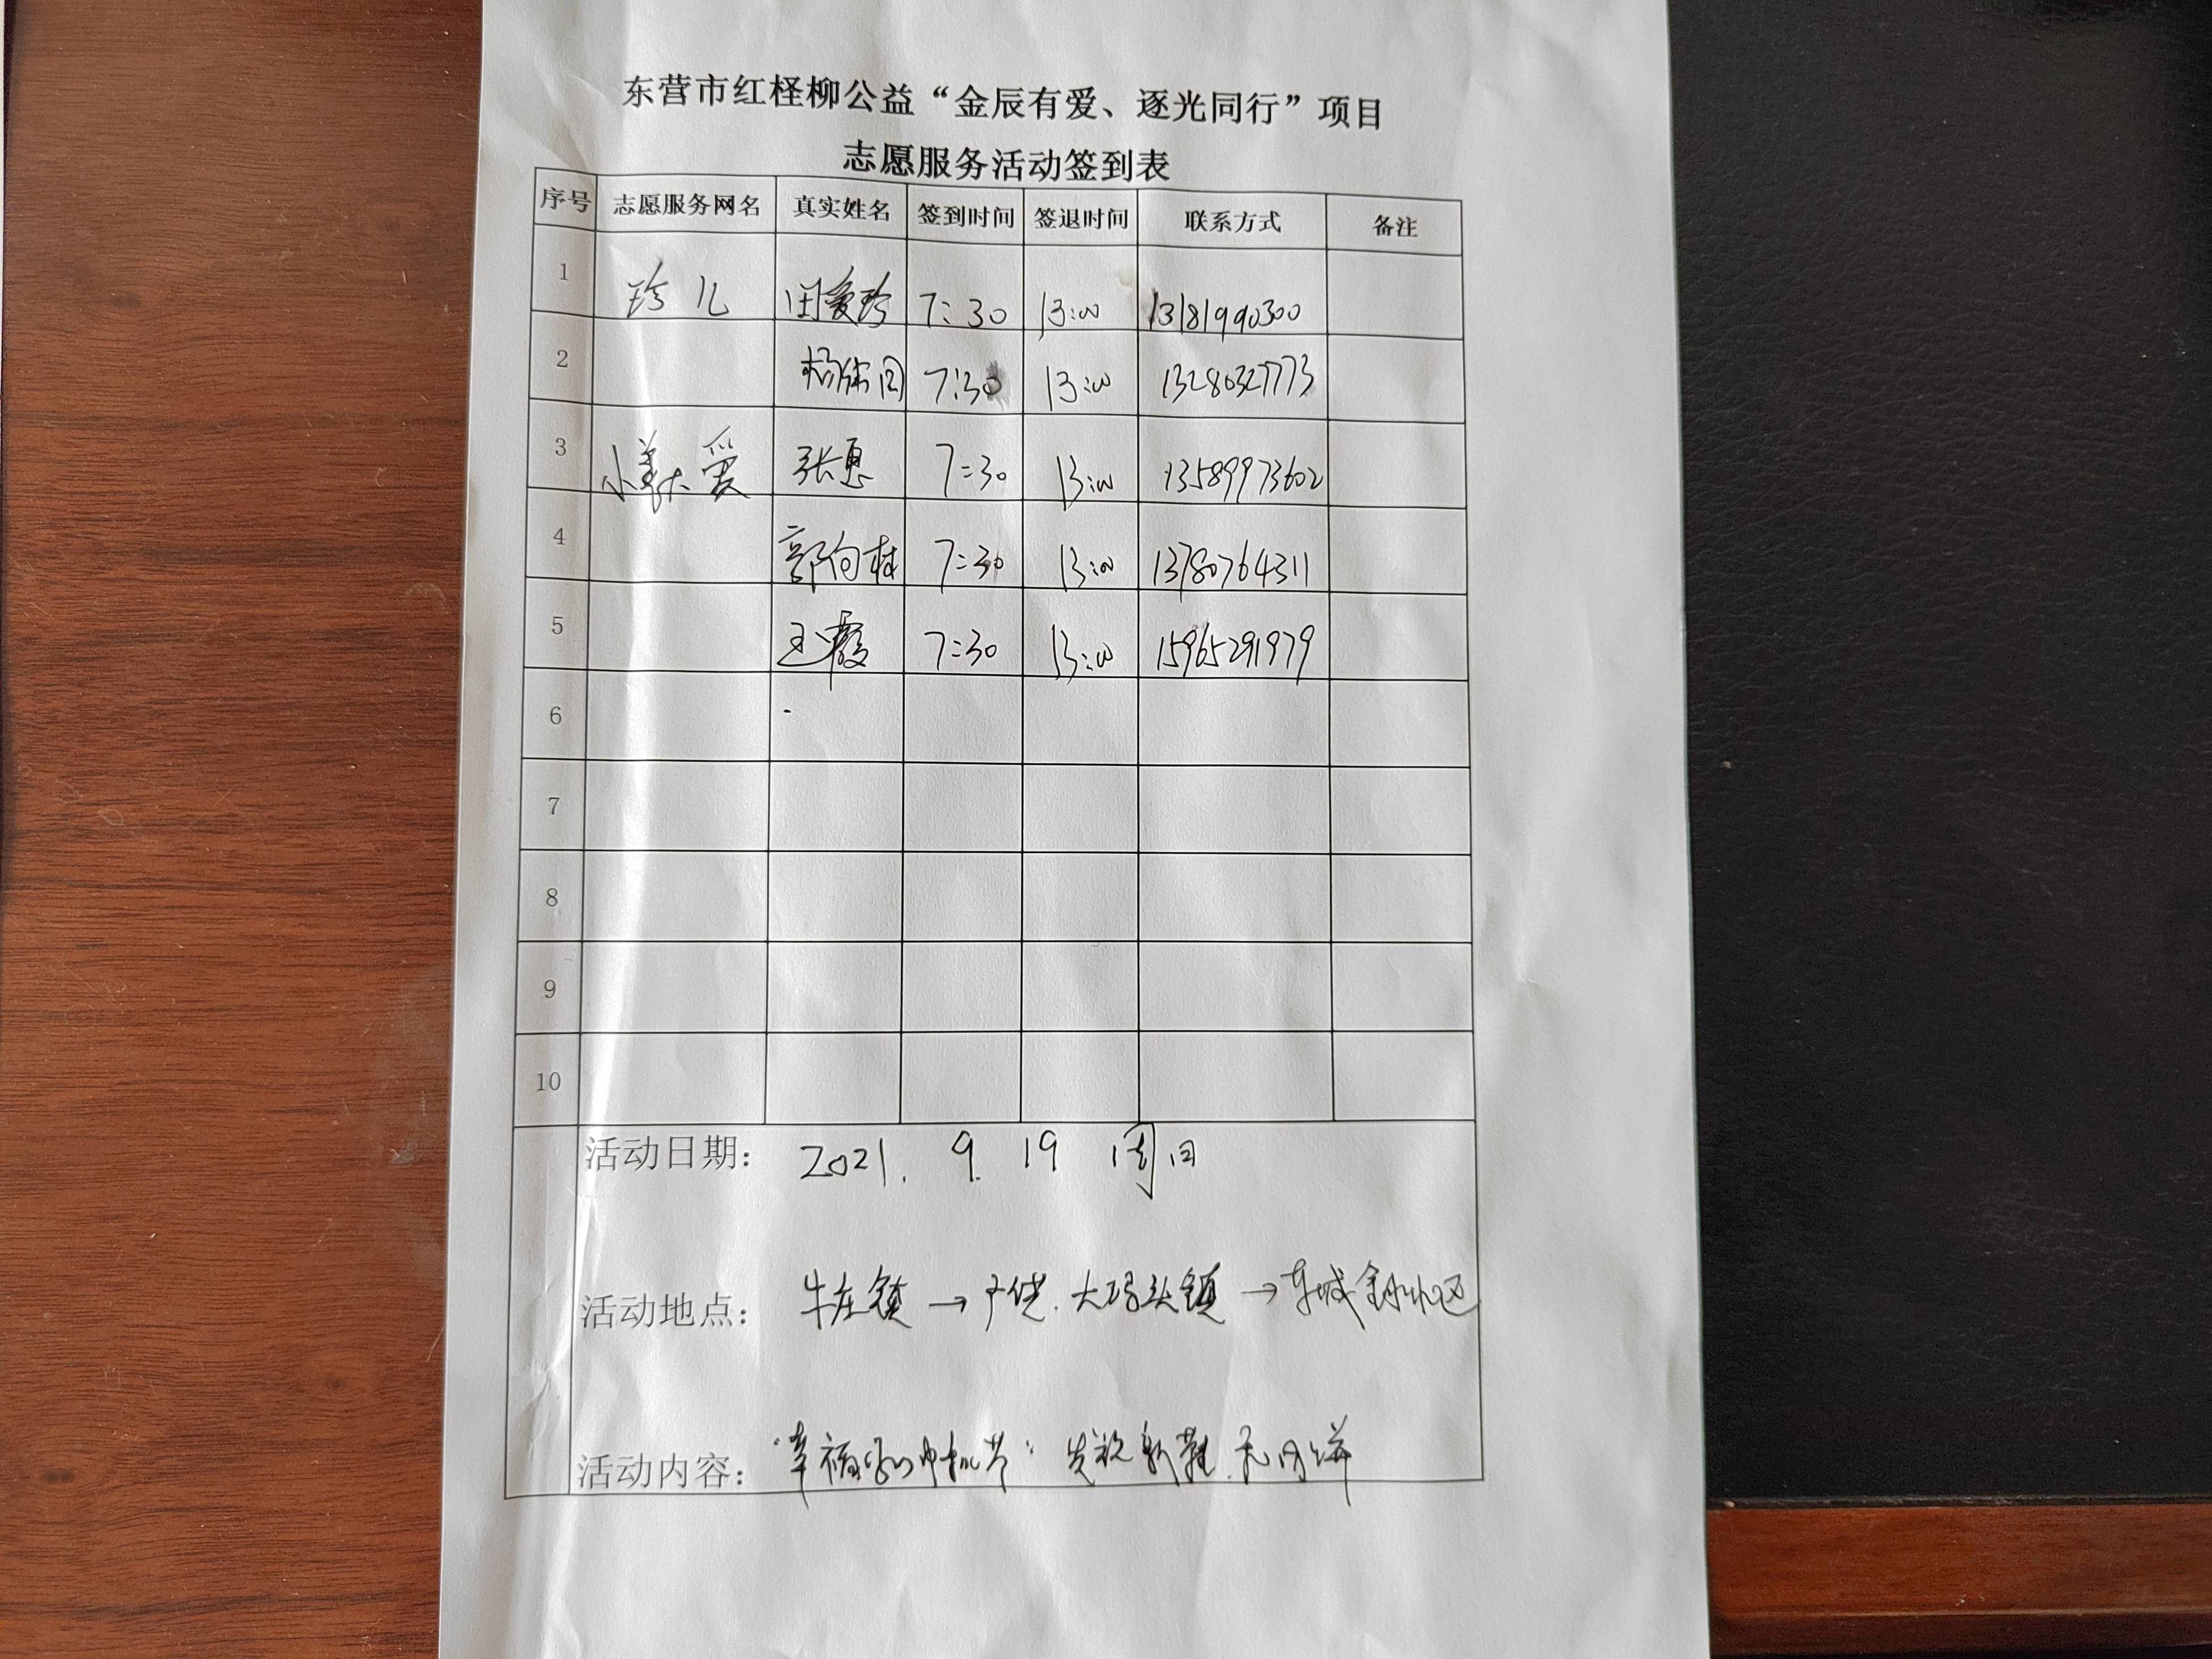 东营市红柽柳公益“金辰有爱、逐光同行”项目
志愿服务活动签到表
序号 志愿服务网名 真实姓名 签到时间 签退时间 联系方式 备注
1 珍儿 田爱珍 7:30 13:00 13181990300
2 杨 7:30 13:00 13280327773
3 小美大爱 张惠 7:30 13:00 13589973602
4 郭向林 7:30 13:00 13780764311
5 王霞 7:30 13:00 15965291979
6
7
8
9
10
活动日期: 2021.9.19 周日
活动地点: 牛庄镇→广饶.大码头镇→东城金水小区
活动内容: 幸福 发祝新鞋 和月饼